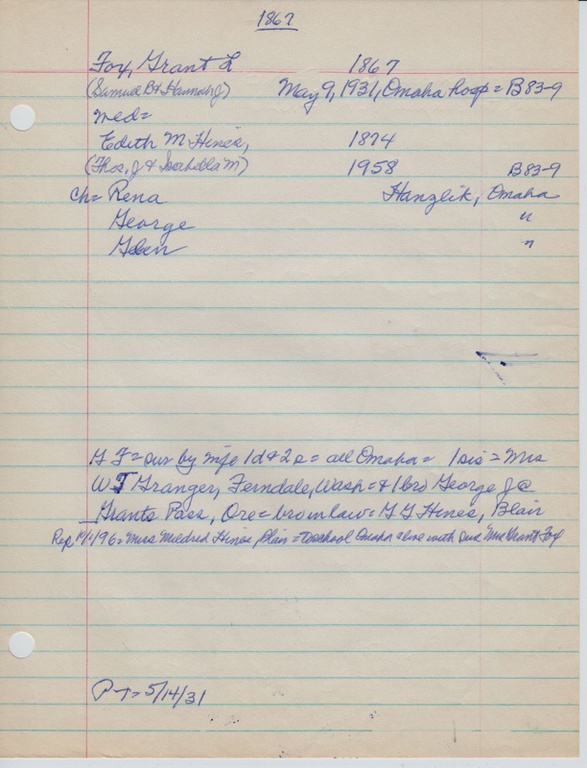 1867
Fox, Grant L 1867
(Samuel B & Hannah J) May 9, 1931, Omaha hosp = B83-9
med=
Edith M Hines, 1874
(Thos, J & Isabella M) 1958 B83-9
Ch= Rena Hanzlik, Omaha
George "
Glen "
G F = sur by wife 1d & 2s = all Omaha = 1 sis = Mrs
W J Granger, Ferndale, Wash = & 1 bro George J @
Grants Pass, Ore = bro in law = G G Hines, Blair
Miss Mildred Hines, Blair = to school Omaha & live with Mrs Grant Fox
P-T= 5/14/31